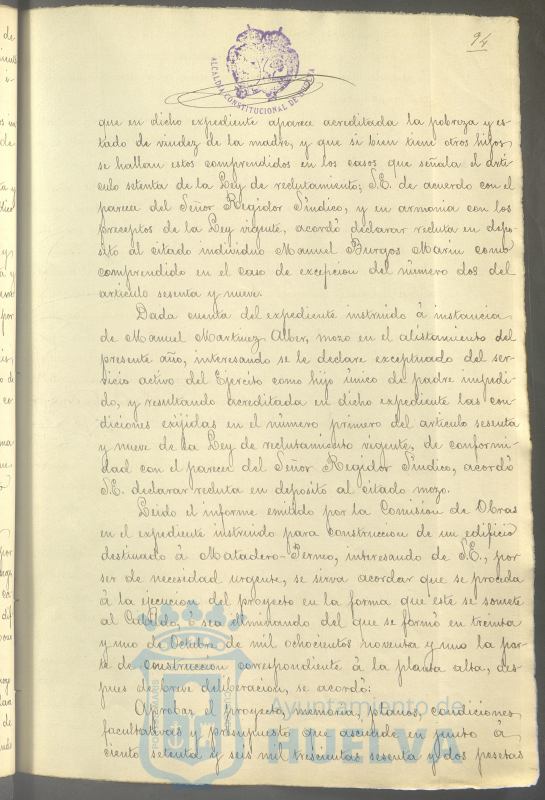 94
ALCALDIA CONSTITUCIONAL DE HUELVA
que en dicho expediente aparece acreditada la pobreza y es-
tado de viudez de la madre, y que si bien tiene otros hijos
se hallan estos comprendidos en los casos que señala el artí-
culo setenta de la Ley de reclutamiento; S.E. de acuerdo con el
parecer del Señor Regidor Síndico, y en armonia con los
preceptos de la Ley vigente, acordó declarar recluta en depo-
sito al citado individuo Manuel Burgos Marin como
comprendido en el caso de excepcion del número dos del
articulo sesenta y nueve.
Dada cuenta del expediente instruido á instancia
de Manuel Martinez Alber, mozo en el alistamiento del
presente año, interesando se le declare exceptuado del ser-
vicio activo del Ejercito como hijo único de padre impedi-
do, y resultando acreditada en dicho expediente las con-
diciones exijidas en el número primero del articulo sesenta
y nueve de la Ley de reclutamiento vigente, de conformi-
dad con el parecer del Señor Regidor Síndico, acordó
S.E. declarar recluta en deposito al citado mozo.
Leido el informe emitido por la Comision de Obras
en el expediente instruido para construccion de un edificio
destinado á Matadero-Perneo, interesando de S.E., por
ser de necesidad urgente, se sirva acordar que se proceda
á la ejecucion del proyecto en la forma que este se somete
al Cabildo, ó sea eliminando del que se formó en treinta
y uno de Octubre de mil ochocientos noventa y uno la par-
te de construccion correspondiente á la planta alta, des-
pues de breve deliberacion, se acordó:
Aprobar el proyecto, memoria, planos, condiciones
facultativas y presupuesto que asciende en junto á
ciento setenta y seis mil trescientas sesenta y dos pesetas
Ayuntamiento de
HUELVA